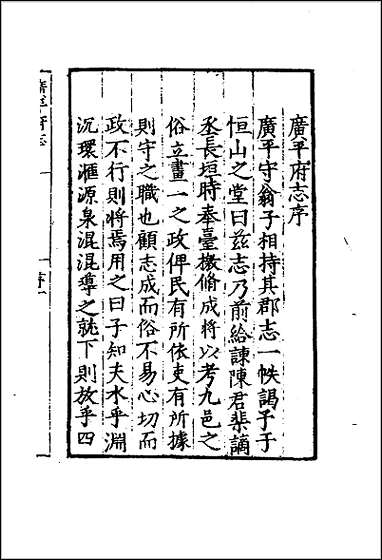 廣平府志序
廣平守翁子相持其郡志一帙謁予于
恒山之堂曰兹志乃前給諫陳君棐謫
丞長垣時奉臺檄脩成將以考九邑之
俗立畫一之政俾民有所依吏有所據
則守之職也顧志成而俗不易心切而
政不行則將焉用之曰子知夫水乎淵
沉環滙源泉混混導之就下則放乎四
廣平府志